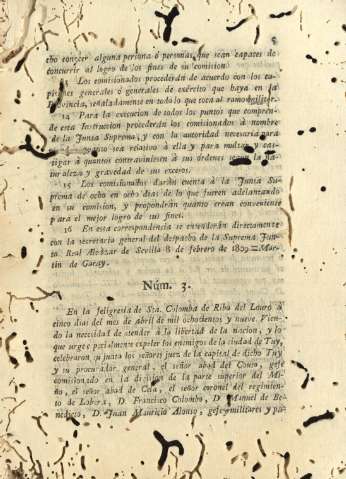 cho conocer alguna persona ó personas, que sean capaces de
concurrir al logro de los fines de su comision.
Los comisionados procederán de acuerdo con los ca-
pitanes generales ó generales de exército que haya en la
Provincia, señaladamente en todo lo que toca al ramo militar.
14 Para la execucion de todos los puntos que compren-
de esta Instruccion procederán los comisionados á nombre
de la Junta Suprema, y con la autoridad necesaria para
todo sea relativo á ella y para multar y cas-
tigar á quantos contraviniesen á sus órdenes segun la na-
turaleza y gravedad de sus excesos.
15 Los comisionados darán cuenta á la Junta Su-
prema de ocho en ocho dias de lo que fueren adelantando
en su comision, y propondrán quanto crean conveniente
para el mejor logro de sus fines.
16 En esta correspondencia se entenderán directamente
con la secretaria general del despacho de la Suprema Jun-
ta Real Alcázar de Sevilla 8 de febrero de 1809 = Mar-
tin de Garay.
Núm. 3.
En la feligresia de Sta. Colomba de Riba del Louro á
cinco dias del mes de abril de mil ochocientos y nueve Vien-
do la necesidad de atender á la libertad de la nacion, y lo
que urge expeler los enemigos de la ciudad de Tuy,
celebraron su junta los señores juez de la capital de dicho Tuy
y su procurador general, el señor abad del Couto, gefe
comisionado en la division de la parte superior del Mi-
ño, el señor abad de Cela, el señor coronel del regimiento
de Lobera, D. Francisco Colombo, D Manuel de Be-
nedicto, D. Juan Mauricio Alonso, gefes militares y pa-